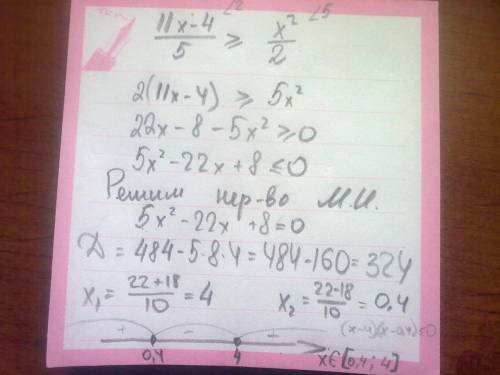 (11x-4)/5 ≥ x²/2
2(11x-4) ≥ 5x²
22x-8-5x² ≥ 0
5x²-22x+8 ≤ 0
Решим нер-во М.И.
5x²-22x+8=0
Д = 484-5·8·4 = 484-160 = 324
x₁ = (22+18)/10 = 4 x₂ = (22-18)/10 = 0,4
(x-4)(x-0,4)≤0
+ - +
0,4 4 x∈[0,4; 4]